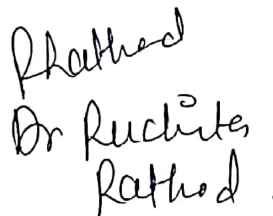 Rhathod
Dr Ruchita
Rathod